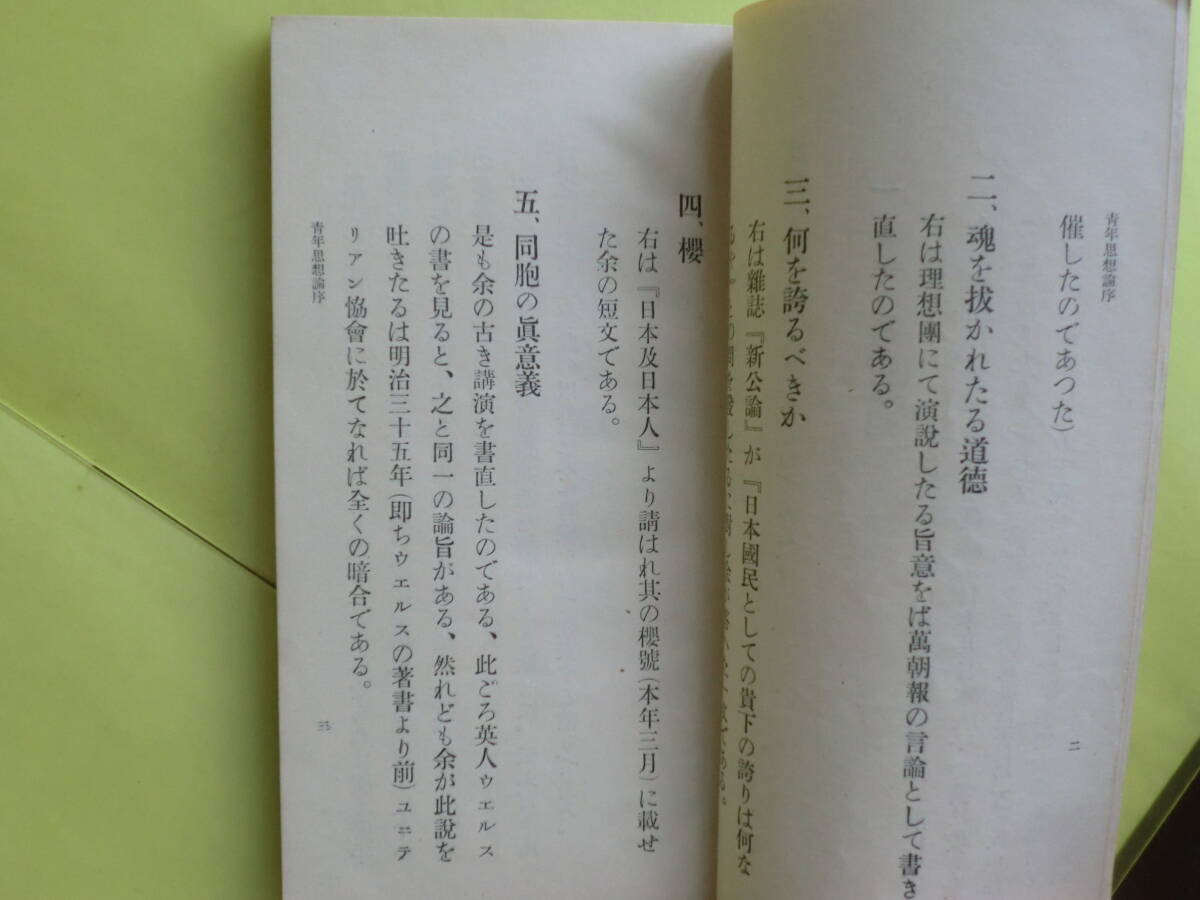 青年思想論序
催したのであつた)
二、魂を拔かれたる道德
右は理想團にて演說したる旨意をば萬朝報の言論として書き
直したのである。
三、何を誇るべきか
右は雜誌『新公論』が『日本國民としての貴下の誇りは何な
二
四、櫻
右は『日本及日本人』より請はれ其の櫻號(本年三月)に載せ
た余の短文である。
五、同胞の眞意義
是も余の古き講演を書直したのである、此ごろ英人ウエルス
の書を見ると、之と同一の論旨がある、然れども余が此說を
吐きたるは明治三十五年(卽ちウエルスの著書より前)ユニテ
リアン協會に於てなれば全くの暗合である。
青年思想論序
三